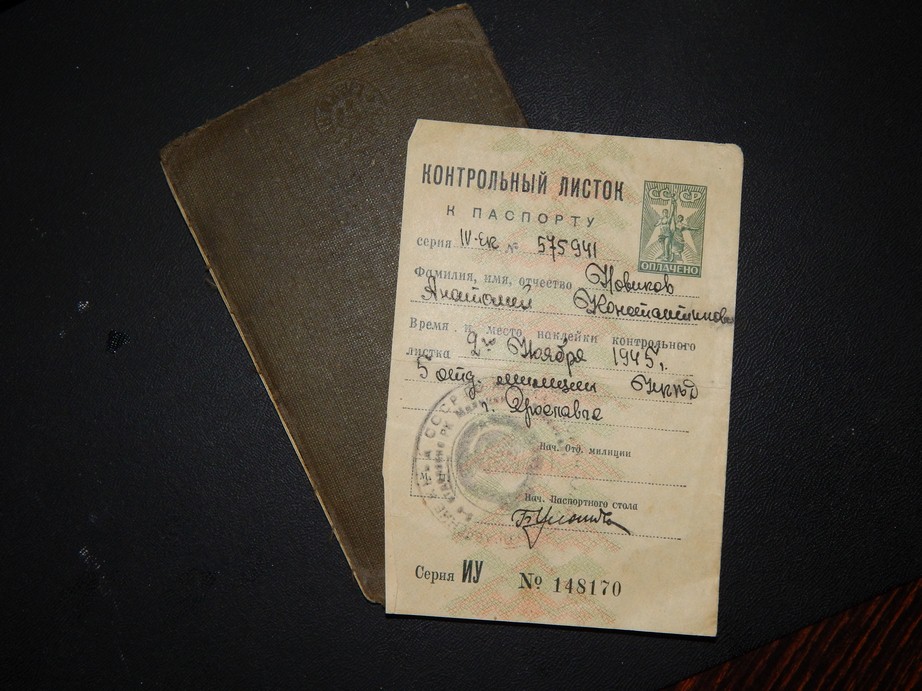 КОНТРОЛЬНЫЙ ЛИСТОК
К ПАСПОРТУ
СССР
ОПЛАЧЕНО
серия IV-ЕК № 575941
Фамилия, имя, отчество Новиков
Анатолий Константинов
Время и место наклейки контрольного
листка 2го Ноября 1945 г.
5 отд. милиции НКВД
г. Ярославля
Нач. Отд. милиции
М. П.
Нач. Паспортного стола
Серия ИУ № 148170